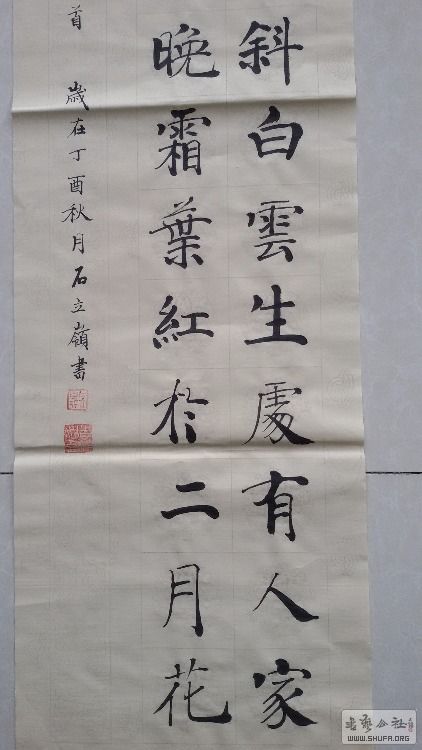 斜白雲生處有人家
晚霜葉紅於二月花
首 歲在丁酉秋月石立嶺書
书艺公社
WWW.SHUFA.ORG